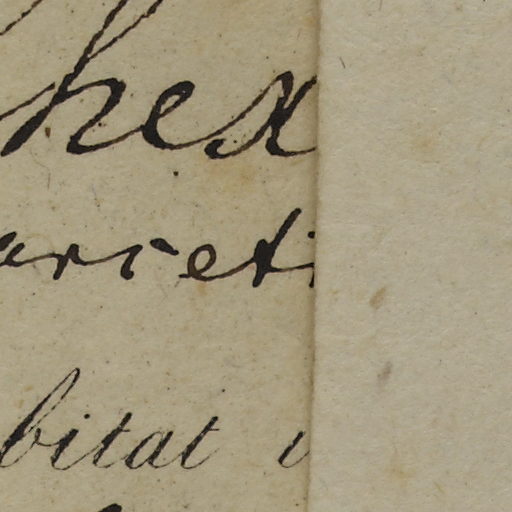 hex
arceti
bitat i